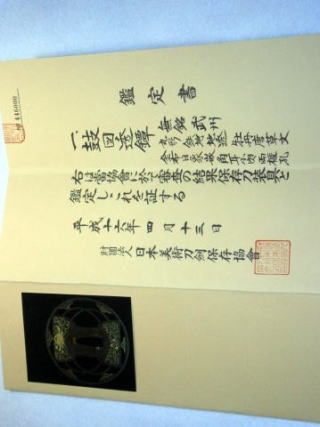 鑑定書
一、鼓図透鐔 無銘 武州
丸形 鉄地 地透 牡丹唐草文
金布目象嵌 角耳小肉 両櫃孔
右は當協會に於て審査の結果保存刀装具と
鑑定しこれを証する
平成十六年四月十三日
財団法人日本美術刀剣保存協會